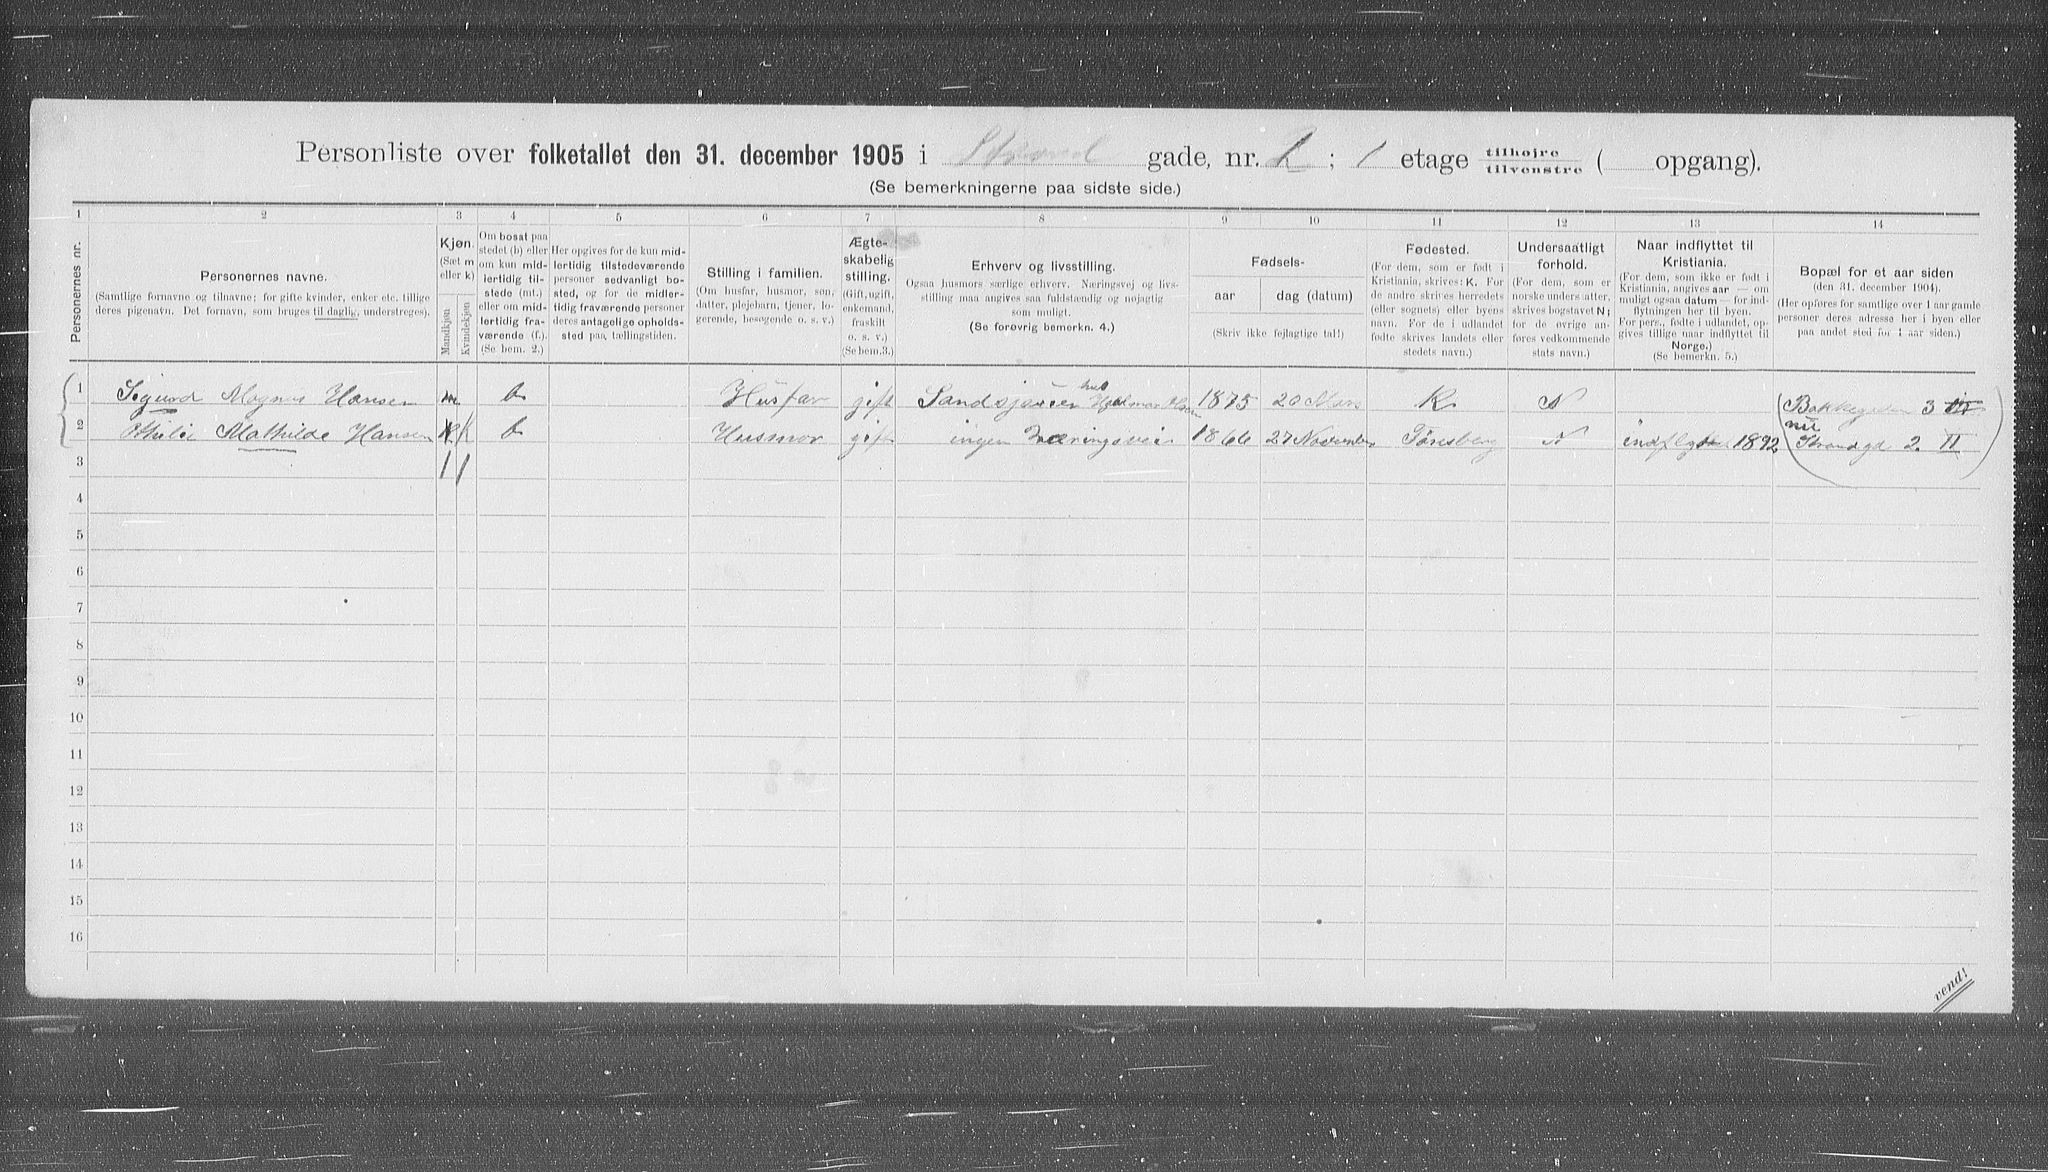 Personliste over folketallet den 31. december 1905 i Strand gade, nr. 2; 1 etage tilhøjre tilvenstre ( opgang).
(Se bemerkningerne paa sidste side.)
1 2 3 4 5 6 7 8 9 10 11 12 13 14
Personernes nr.
Personernes navne.
(Samtlige fornavne og tilnavne; for gifte kvinder, enker etc. tillige
deres pigenavn. Det fornavn, som bruges til daglig, understreges).
Kjøn.
(Sæt m
eller k)
Mandkjøn
Kvindekjøn
Om bosat paa
stedet (b) eller
om kun mid-
lertidig til-
stede (mt.)
eller om mid-
lertidig fra-
værende (f.).
(Se bem. 2.)
Her opgives for de kun mid-
lertidig tilstedeværende
personer sedvanligt bo-
sted, og for de midler-
tidig fraværende personer
deres antagelige opholds-
sted paa tællingstiden.
Stilling i familien.
(Om husfar, husmor, søn,
datter, plejebarn, tjener, lo-
gerende, besøgende o. s. v.)
Ægte-
skabelig
stilling.
(Gift, ugift,
enkemand,
fraskilt
o. s. v.)
(Se bem. 3.)
Erhverv og livsstilling.
Ogsaa husmors særlige erhverv. Næringsvej og livs-
stilling maa angives saa fuldstændig og nøjagtig
som muligt.
(Se forøvrig bemerkn. 4.)
Fødsels-
aar dag (datum)
(Skriv ikke fejlagtige tal!)
Fødested.
(For dem, som er født i
Kristiania, skrives: K. For
de andre skrives herredets
(eller sognets) eller byens
navn. For de i udlandet
fødte skrives landets eller
stedets navn.)
Undersaatligt
forhold.
(For dem, som er
norske undersaatter,
skrives bogstavet N;
for de øvrige an-
føres vedkommende
stats navn.)
Naar indflyttet til
Kristiania.
(For dem, som ikke er født i
Kristiania, angives aar — om
muligt ogsaa datum — for ind-
flytningen her til byen.
For pers., fødte i udlandet, op-
gives tillige naar indflyttet til
Norge.)
(Se bemerkn. 5.)
Bopæl for et aar siden
(den 31. december 1904).
(Her opføres for samtlige over 1 aar gamle
personer deres adresse her i byen eller
paa andet sted for 1 aar siden.)
1 Sigurd Magnus Hansen m b Husfar gift hos Hjalmar Olsen 1875 20 Mars K N Bakkegaden 3 III
2 Mathilde Hansen K K b Husmor gift ingen Næringsvei 1866 27 November Tønsberg N indflyttet 1892 nu Strandgd 2 II
3 1 1
4
5
6
7
8
9
10
11
12
13
14
15
16
vend!